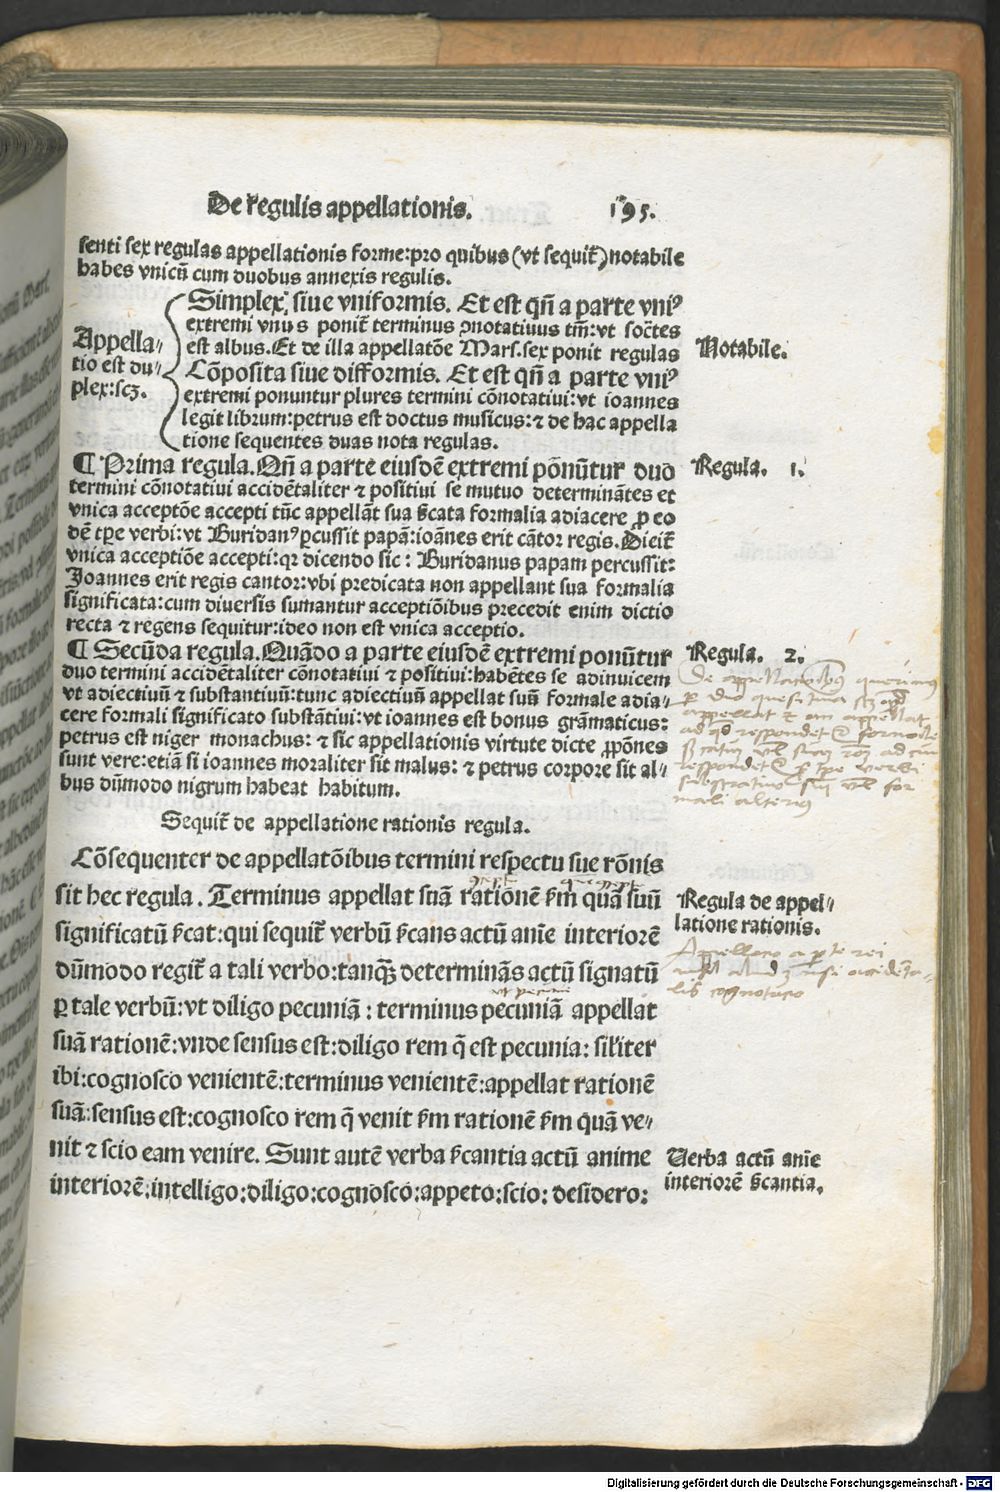 De regulis appellationis. 195.
senti sex regulas appellationis forme:pro quibus (vt sequit̃) notabile
habes vnicũ cum duobus annexis regulis.
Appella-
tio est du-
plex:scꝫ.
Simplex, siue vniformis. Et est qñ a parte vniꝰ
extremi vnus ponit̃ terminus ꝯnotatiuus tm̃:vt soc̃tes
est albus. Et de illa appellatõe Mars. sex ponit regulas
Cõposita siue difformis. Et est qñ a parte vniꝰ
extremi ponuntur plures termini cõnotatiui:vt ioannes
legit librum:petrus est doctus musicus:⁊ de hac appella
tione sequentes duas nota regulas.
Notabile.
¶ Prima regula. Qñ a parte eiusdẽ extremi põnũtur duo
termini cõnotatiui accidẽtaliter ⁊ positiui se mutuo determinãtes et
vnica acceptõe accepti tũc appellãt sua ß̃cata formalia adiacere ꝓ eo
dẽ tꝑe verbi:vt Buridanꝰ ꝑcussit papã:ioãnes erit cãtor regis. Dicit̃
vnica acceptiõe accepti:qꝛ dicendo sic: Buridanus papam percussit:
Joannes erit regis cantor:vbi predicata non appellant sua formalia
significata:cum diuersis sumantur acceptiõibus precedit enim dictio
recta ⁊ regens sequitur:ideo non est vnica acceptio.
Regula. 1.
¶ Secũda regula. Quãdo a parte eiusdẽ extremi ponũtur
duo termini accidẽtaliter cõnotatiui ⁊ positiui:habẽtes se adinuicem
vt adiectiuũ ⁊ substantiuũ:tunc adiectiuũ appellat suũ formale adia-
cere formali significato substãtiui:vt ioannes est bonus grãmaticus:
petrus est niger monachus: ⁊ sic appellationis virtute dicte ꝓpõnes
sunt vere:etiã si ioannes moraliter sit malus: ⁊ petrus corpore sit al-
bus dũmodo nigrum habeat habitum.
Regula. 2.
De appellationibus querimus
appellat ⁊ an appellat
Sequit̃ de appellatione rationis regula.
Cõsequenter de appellatõibus termini respectu sue rõnis
sit hec regula. Terminus appellat suã rationẽ ß̃m quã suũ
significatũ ß̃cat:qui sequit̃ verbũ ß̃cans actũ anĩe interiorẽ
dũmodo regit̃ a tali verbo:tanqꝫ determinãs actũ signatũ
ꝑ tale verbũ:vt diligo pecuniã: terminus pecuniã appellat
suã rationẽ:vnde sensus est:diligo rem q̃ est pecunia: sil̃iter
ibi:cognosco venientẽ:terminus venientẽ:appellat rationẽ
suã:sensus est:cognosco rem q̃ venit ß̃m rationẽ ß̃m quã ve-
nit ⁊ scio eam venire. Sunt autẽ verba ß̃cantia actũ anime
interiorẽ:intelligo:diligo:cognosco:appeto:scio: desidero:
Regula de appel-
latione rationis.
Verba actũ anĩe
interiorẽ ß̃cantia.
Digitalisierung gefördert durch die Deutsche Forschungsgemeinschaft - DFG